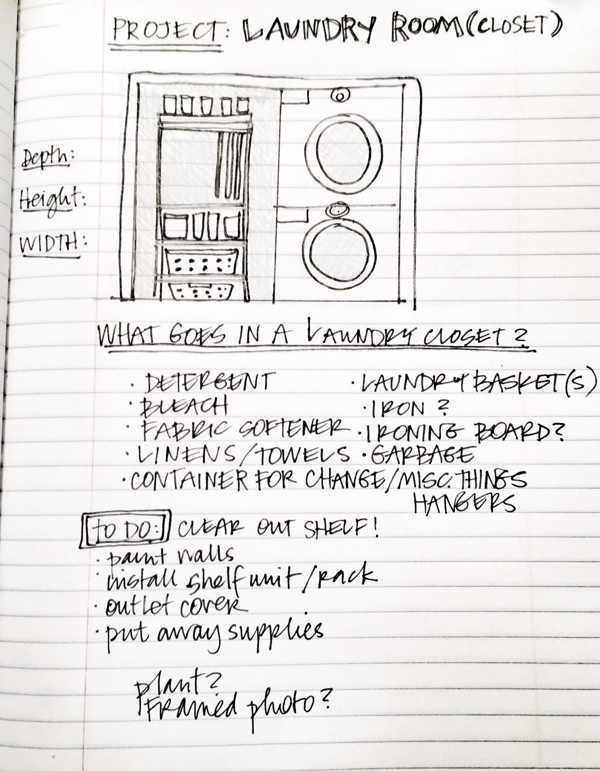 PROJECT: LAUNDRY ROOM (CLOSET)
Depth:
Height:
WIDTH:
WHAT GOES IN A LAUNDRY CLOSET?
· DETERGENT
· BLEACH
· FABRIC SOFTENER
· LINENS/TOWELS
· CONTAINER FOR CHANGE/MISC. THINGS
· LAUNDRY BASKET(S)
· IRON?
· IRONING BOARD?
· GARBAGE
HANGERS
TO DO: CLEAR OUT SHELF!
· paint walls
· install shelf unit/rack
· outlet cover
· put away supplies
plant?
FRamed photo?